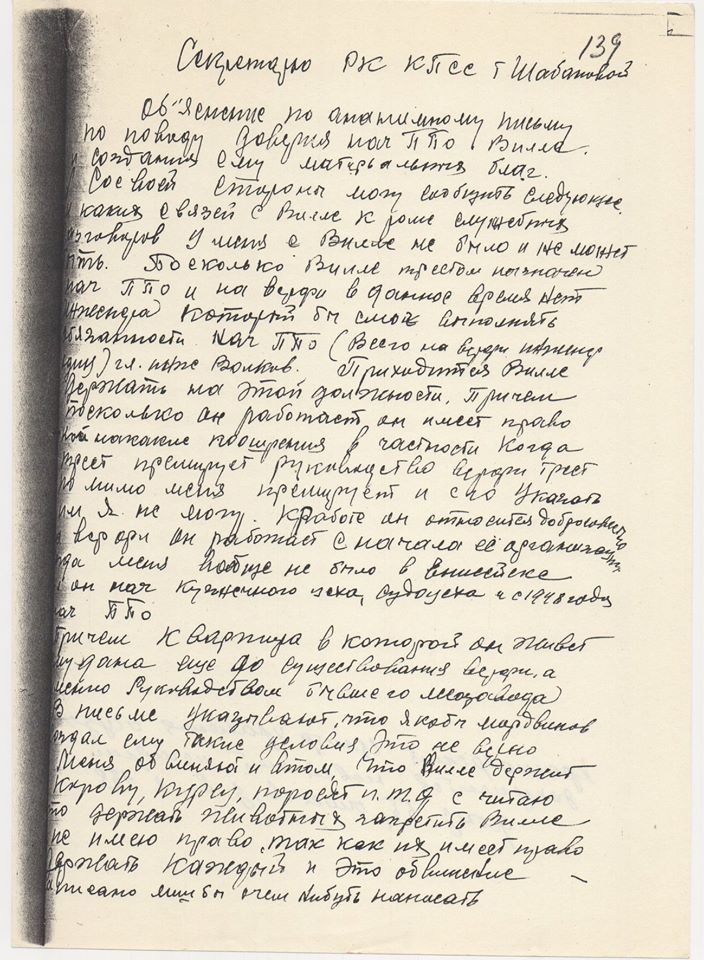 139
Секретарю РК КПСС т Шабановой
Об"яснение по анонимному письму
по поводу доверия нач ППО Вилле.
и создания ему матерьяльных благ.
Со своей стороны могу сообщить следующие
каких связей с Вилле кроме служебных
зговоров у меня с Вилле не было и не может
ыть. Посколько Вилле трестом назначен
нач ППО и на верфи в данное время нет
нженера который бы смог выполнять
бязанности нач ППО (Всего на верфи инженер
один) гл. инже Волков. Приходится Вилле
держать на этой должности. Причем
посколько он работает он имеет право
на какие поощрения в частности когда
рест премирует руководство верфи трест
по мимо меня премирует и его указать
им я не могу. К работе он относится добросовестно
а верфи он работает с начала её организации
да меня вообще не было в Енисейске
он нач кузнечного цеха, судоцеха и с 1948 года
ач ППО
Причем квартира в которой он живет
му дана еще до существования верфи, а
менно руководством бывшего лесозавода
В письме указывают, что якобы мордвинов
здал ему такие условия это не верно
Меня обвиняют и в том, что Вилле держит
Корову, куриц, поросят и.т.д считаю
то держать животных запретить Вилле
не имею право, так как их имеет право
держать каждый и это обвинение
аписано бы о чем нибуть написать